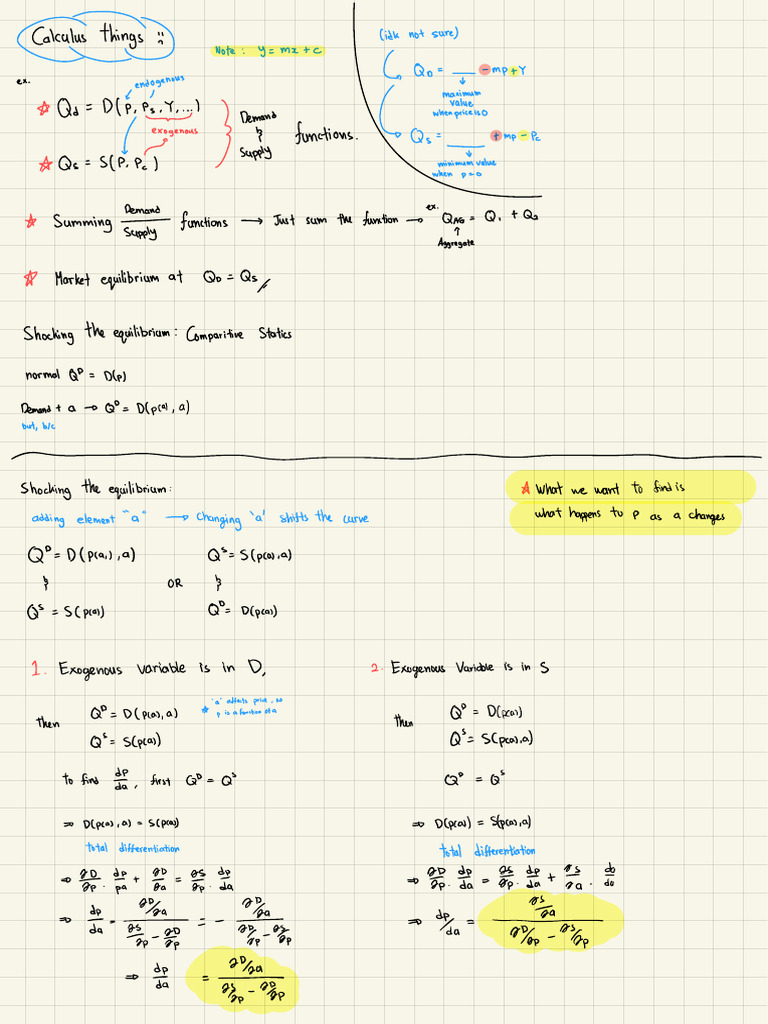 Calculus things
Note: y = mx + c
(idk not sure)
Q_D = ___ - mp + Y
maximum
value
when price is 0
Q_S = ___ + mp - P_c
minimum value
when p = 0
ex.
endogenous
☆ Q_d = D(P, P_s, Y, ...)
exogenous
☆ Q_s = S(P, P_c)
Demand
&
Supply
functions.
☆ Summing Demand/Supply functions → Just sum the function → ex. Q_AG = Q_1 + Q_2
Aggregate
☆ Market equilibrium at Q_D = Q_S
Shocking the equilibrium: Comparitive Statics
normal Q^D = D(p)
Demand + a → Q^D = D(p(a), a)
but, b/c
Shocking the equilibrium:
☆ What we want to find is
what happens to P as a changes
adding element "a" → Changing 'a' shifts the curve
Q^D = D(p(a), a) Q^S = S(p(a), a)
& OR &
Q^S = S(p(a)) Q^D = D(p(a))
1. Exogenous variable is in D,
then
Q^D = D(p(a), a)
☆ 'a' affects price, so
p is a function of a
Q^S = S(p(a))
to find dp/da, first Q^D = Q^S
⇒ D(p(a), a) = S(p(a))
total differentiation
⇒ ∂D/∂p · dp/pa + ∂D/∂a = ∂S/∂p · dp/da
⇒ dp/da = (∂D/∂a)/(∂S/∂p - ∂D/∂p) = - (∂D/∂a)/(∂D/∂p - ∂S/∂p)
⇒ dp/da = (∂D/∂a)/(∂S/∂p - ∂D/∂p)
2. Exogenous Variable is in S
then
Q^D = D(p(a))
Q^S = S(p(a), a)
Q^D = Q^S
⇒ D(p(a)) = S(p(a), a)
total differentiation
⇒ ∂D/∂p · dp/da = ∂S/∂p · dp/da + ∂S/∂a · da/da
⇒ dp/da = (∂S/∂a)/(∂D/∂p - ∂S/∂p)